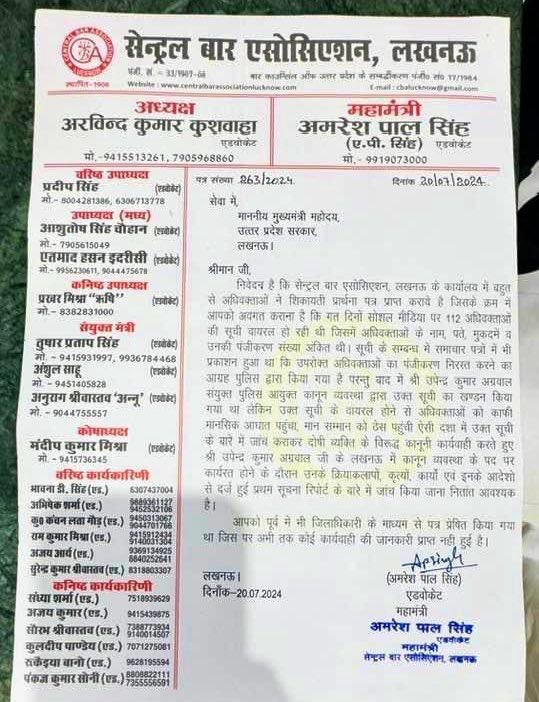 CENTRAL BAR ASSOCIATION
LUCKNOW
स्थापित-1906
सेन्ट्रल बार एसोसिएशन, लखनऊ
पंजी. सं. - 33/1967-68
बार काउन्सिल ऑफ उत्तर प्रदेश के सम्बद्धीकरण पंजी० सं० 17/1984
Website : www.centralbarassociationlucknow.com
E-mail : cbalucknow@gmail.com
अध्यक्ष
अरविन्द कुमार कुशवाहा
एडवोकेट
मो.-9415513261, 7905968860
महामंत्री
अमरेश पाल सिंह
(ए.पी. सिंह) एडवोकेट
मो.-9919073000
वरिष्ठ उपाध्यक्ष
प्रदीप सिंह (एडवोकेट)
मो.- 8004281386, 6306713778
उपाध्यक्ष (मध्य)
आशुतोष सिंह चौहान (एडवोकेट)
मो.- 7905615049
एतमाद हसन इदरीसी (एडवोकेट)
मो.- 9956230611, 9044475678
कनिष्ठ उपाध्यक्ष
प्रखर मिश्रा "ऋषि" (एडवोकेट)
मो.- 8382831000
संयुक्त मंत्री
तुषार प्रताप सिंह (एडवोकेट)
मो. - 9415931997, 9936784468
अंशुल साहू (एडवोकेट)
मो.- 9451405828
अनुराग श्रीवास्तव 'अन्नू' (एडवोकेट)
मो.- 9044755557
कोषाध्यक्ष
मंदीप कुमार मिश्रा (एडवोकेट)
मो.- 9415736345
वरिष्ठ कार्यकारिणी
भावना डी. सिंह (एड.) 6307437004
अभिषेक शर्मा (एड.) 9889361127
9452532106
कु० कंचन लता गौड़ (एड.) 9450313067
9044701766
राम कुमार मिश्रा (एड.) 9415912434
9140031304
अजय आर्य (एड.) 9369134925
8840252641
सुरेन्द्र कुमार श्रीवास्तव (एड.) 8318803307
कनिष्ठ कार्यकारिणी
संध्या शर्मा (एड.) 7518939629
अजय कुमार (एड.) 9415439875
सौरभ श्रीवास्तव (एड.) 7388773934
9140014507
कुलदीप पाण्डेय (एड.) 7071275081
रुकैइया बानो (एड.) 9628195594
पंकज कुमार सोनी (एड.) 8808822111
7355556591
पत्र संख्या 263/2024
दिनांक 20/07/2024
सेवा में,
माननीय मुख्यमंत्री महोदय,
उत्तर प्रदेश सरकार,
लखनऊ।
श्रीमान जी,
निवेदन है कि सेन्ट्रल बार एसोसिएशन, लखनऊ के कार्यालय में बहुत
से अधिवक्ताओं ने शिकायती प्रार्थना पत्र प्राप्त कराये है जिसके क्रम में
आपको अवगत कराना है कि गत दिनों सोशल मीडिया पर 112 अधिवक्ताओं
की सूची वायरल हो रही थी जिसमें अधिवक्ताओं के नाम, पते, मुकदमें व
उनकी पंजीकरण संख्या अंकित थी। सूची के सम्बन्ध में समाचार पत्रों में भी
प्रकाशन हुआ था कि उपरोक्त अधिवक्ताओं का पंजीकरण निरस्त करने का
आग्रह पुलिस द्वारा किया गया है परन्तु बाद में श्री उपेन्द्र कुमार अग्रवाल
संयुक्त पुलिस आयुक्त कानून व्यवस्था द्वारा उक्त सूची का खण्डन किया
गया था लेकिन उक्त सूची के वायरल होने से अधिवक्ताओं को काफी
मानसिक आघात पहुंचा, मान सम्मान को ठेस पहुंची ऐसी दशा में उक्त सूची
के बारे में जांच कराकर दोषी व्यक्ति के विरूद्ध कानूनी कार्यवाही करते हुए
श्री उपेन्द्र कुमार अग्रवाल जी के लखनऊ में कानून व्यवस्था के पद पर
कार्यरत होने के दौरान उनके क्रियाकलापों, कृत्यों, कार्यों एवं इनके आदेशो
से दर्ज हुई प्रथम सूचना रिपोर्ट के बारे में जांच किया जाना नितांत आवश्यक
है।
आपको पूर्व में भी जिलाधिकारी के माध्यम से पत्र प्रेषित किया गया
था जिस पर अभी तक कोई कार्यवाही की जानकारी प्राप्त नही हुई है।
Apsingh
लखनऊ।
दिनाँक-20.07.2024
(अमरेश पाल सिंह)
एडवोकेट
महामंत्री
अमरेश पाल सिंह
एडवोकेट
महामंत्री
सेन्ट्रल बार एसोसिएशन, लखनऊ